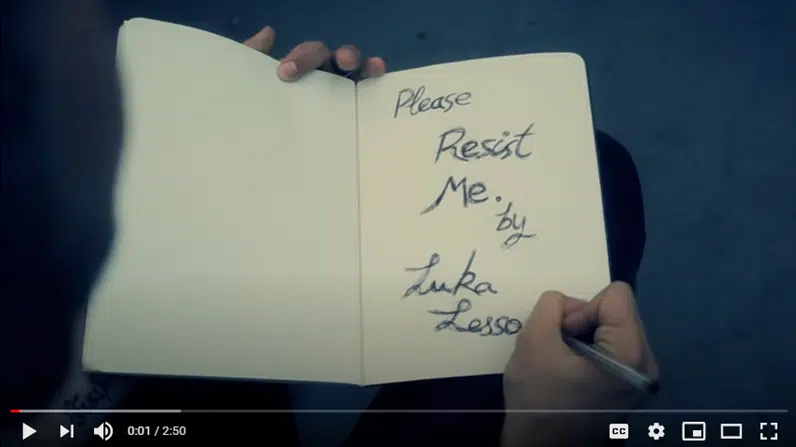 Please
Resist
Me.
by
Luka
Lesso
0:01 / 2:50
CC